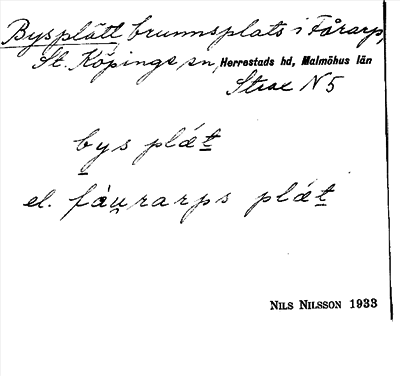 Bysplätt, brunnsplats i Fårarp,
St. Köpinge sn, Herrestads hd, Malmöhus län
Strax N 5
bys plæt
el. fàurarps plæt
NILS NILSSON 1933